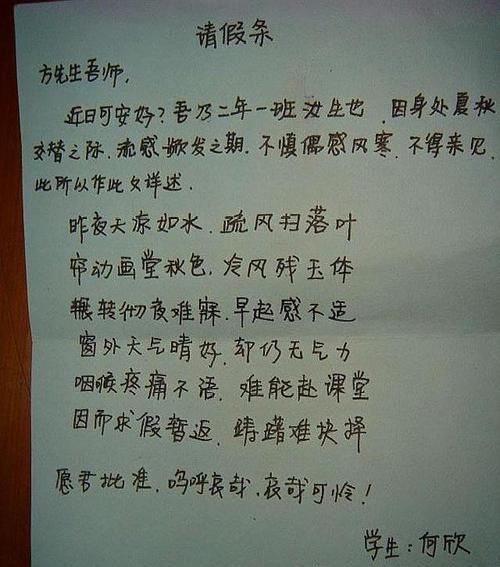 请假条
方先生吾师,
近日可安好?吾乃二年一班汝生也,因身处夏秋
交替之际,流感频发之期,不慎偶感风寒,不得亲见,
此所以作此文详述.
昨夜天凉如水,疏风扫落叶
帘动画堂秋色,冷风残玉体
辗转彻夜难寐,早起感不适
窗外天气晴好,却仍无气力
咽喉疼痛不语,难能赴课堂
因而求假暂返,踌躇难抉择
愿君批准,呜呼哀哉,哀哉可怜!
学生:何欣